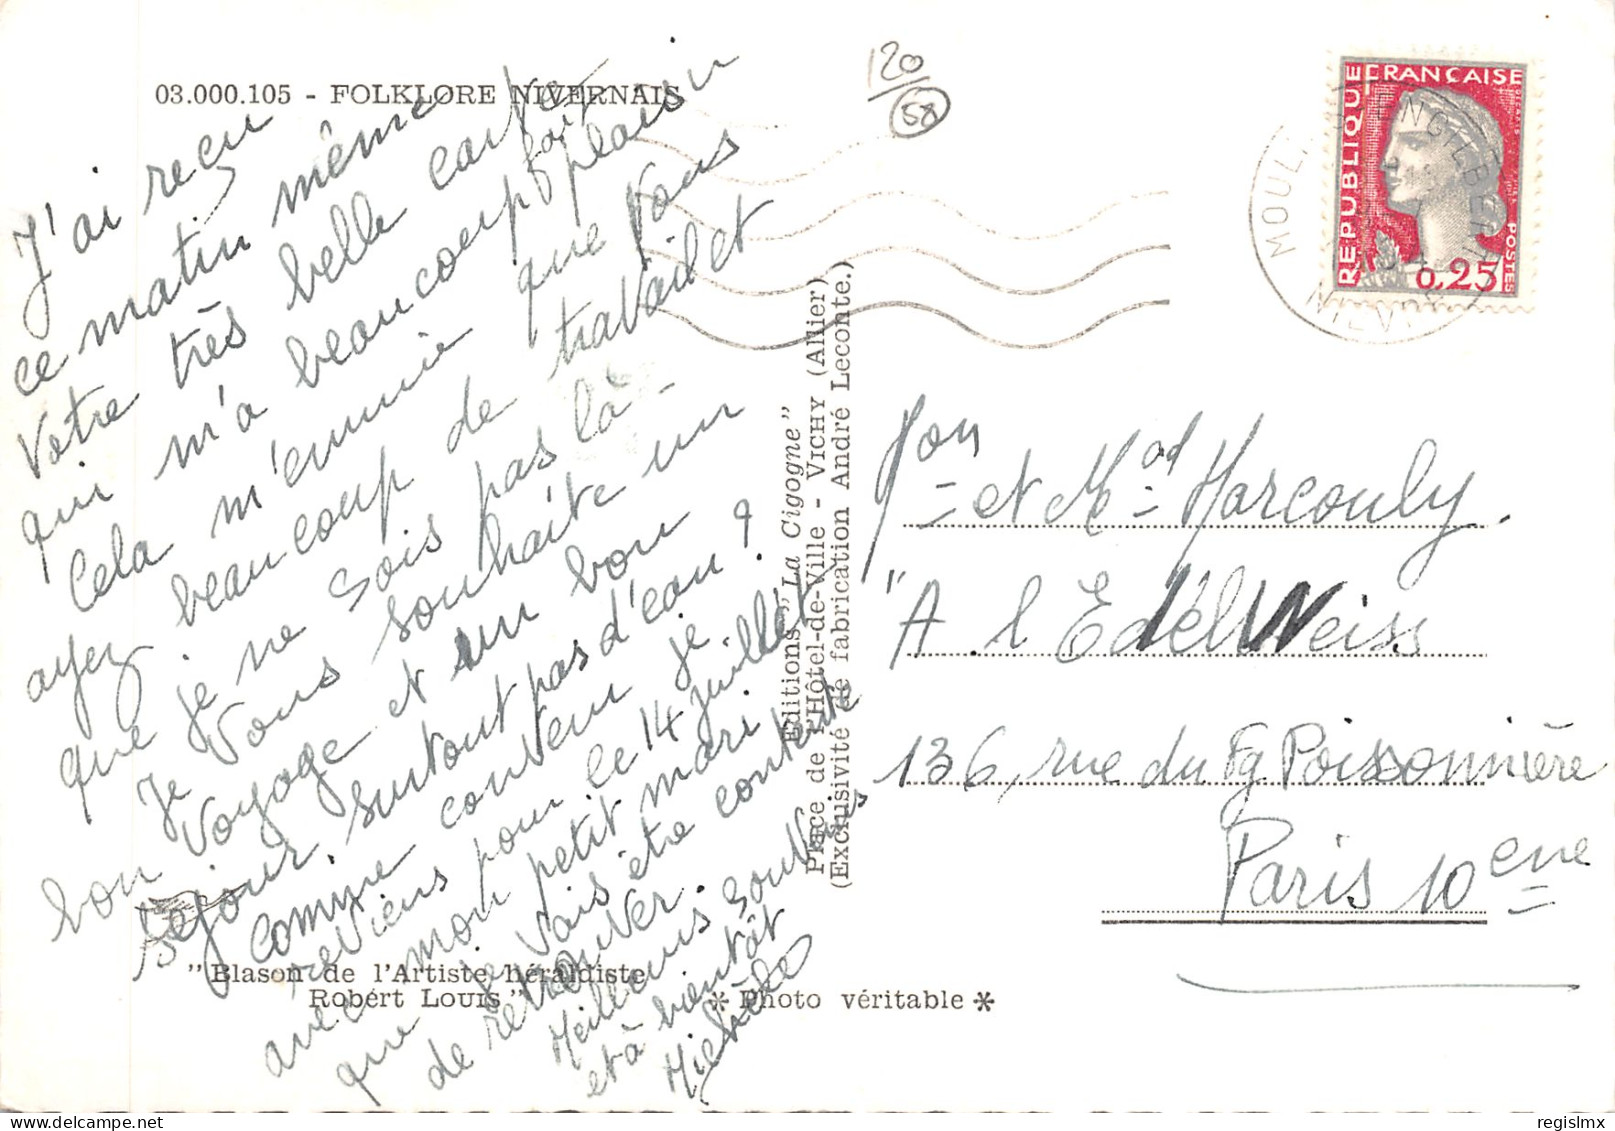 03.000.105 - FOLKLORE NIVERNAIS
J'ai reçu
ce matin même
Votre très belle carte
qui m'a beaucoup fait plaisir
Cela m'ennuie que Vous
ayez beaucoup de travail et
que je ne sois pas là -
Je Vous souhaite un
bon Voyage et un bon
Séjour. surtout pas d'eau ?
Comme convenu je
reViens pour le 14 juillet
avec mon petit mari
que je Vais être contente
de retrouVer.
Meilleurs souVenirs
et à bientôt
Michèle
"Blason de l'Artiste héraldiste
Robert LOUIS"
* Photo véritable *
Editions "La Cigogne"
Place de l'Hôtel-de-Ville - VICHY (Allier)
(Exclusivité de fabrication André Leconte.)
120
58
REPUBLIQUE FRANÇAISE
POSTES
0,25
MOULINS ENGILBERT
NIEVRE
et Mad Marcouly
"A l'EdelWeiss
136, rue du Fg Poissonnière
Paris 10eme
regislmx